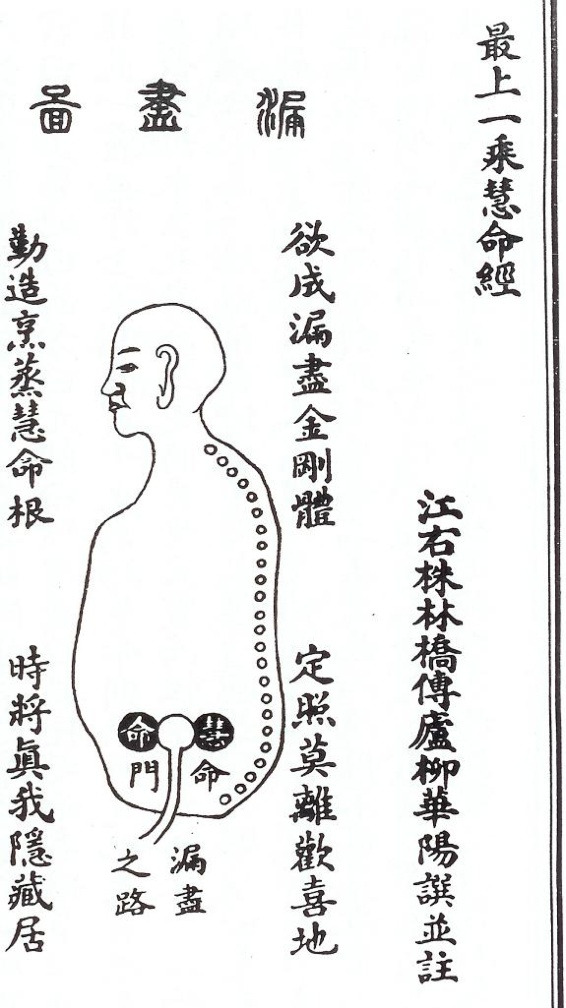 最上一乘慧命經
江右株林橋傳廬柳華陽譔並註
漏盡圖
欲成漏盡金剛體
勤造烹蒸慧命根
定照莫離歡喜地
時將眞我隱藏居
慧命
命門
漏盡
之路